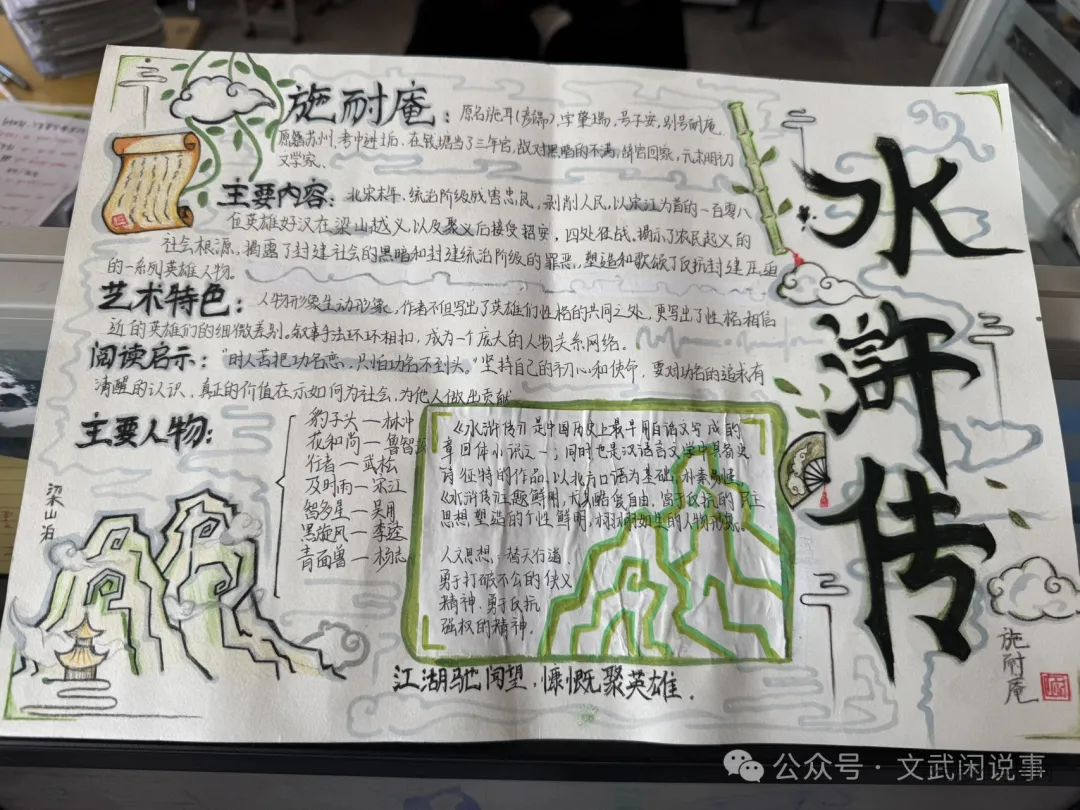 水浒传
施耐庵
施耐庵：原名施耳(彦端),字肇瑞,号子安,别号耐庵.
原籍苏州.考中进士后,在钱塘当了三年官,故对黑暗的不满,辞官回家,元末明初
文学家.
主要内容：北宋末年,统治阶级残害忠良,剥削人民,以宋江为首的一百零八
位英雄好汉在梁山起义,以及聚义后接受招安,四处征战.揭示了农民起义的
社会根源,揭露了封建社会的黑暗和封建统治阶级的罪恶,塑造和歌颂了反抗封建压迫
的一系列英雄人物.
艺术特色：人物形象生动形象,作者不但写出了英雄们性格的共同之处,更写出了性格相信
近的英雄们的细微差别.叙事手法环环相扣,成为一个庞大的人物关系网络.
阅读启示："时人苦把功名恋,只怕功名不到头."坚持自己的初心和使命,要对功名的追求有
清醒的认识,真正的价值在示如何为社会,为他人做出贡献
主要人物：
豹子头—林冲
花和尚—鲁智深
行者—武松
及时雨—宋江
智多星—吴用
黑旋风—李逵
青面兽—杨志
梁山泊
《水浒传》是中国历史上最早用白话文写成的
章回体小说之一；同时也是汉语言文学中具备史
诗征特的作品.以北方口语为基础,朴素
《水浒传》主题鲜明,爱自由,富于反抗的民主
思想,塑造的个性鲜明,栩栩如生的人物
人文思想：替天行道
勇于打破不公的侠义
精神.勇于反抗
强权的精神.
江湖驰闻望,慷慨聚英雄.
公众号·文武闲说事